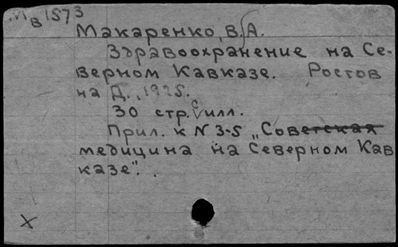 М
в 1573
Макаренко, В. А.
Здравоохранение на Се-
верном Кавказе. Ростов
на Д., 1925.
30 стр. с илл.
Прил. к N 3-5 „Советская
медицина на Северном Кав
казе".
X